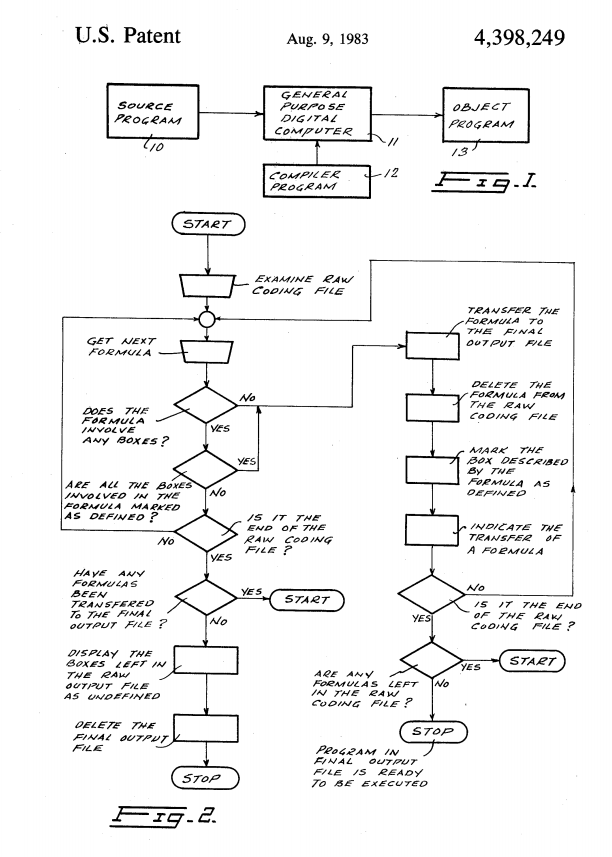 U.S. Patent Aug. 9, 1983 4,398,249
SOURCE
PROGRAM
10
GENERAL
PURPOSE
DIGITAL
COMPUTER
11
OBJECT
PROGRAM
13
COMPILER
PROGRAM
12
Fig. 1.
START
EXAMINE RAW
CODING FILE
GET NEXT
FORMULA
DOES THE
FORMULA
INVOLVE
ANY BOXES?
NO
YES
ARE ALL THE BOXES
INVOLVED IN THE
FORMULA MARKED
AS DEFINED?
YES
NO
IS IT THE
END OF THE
RAW CODING
FILE?
NO
YES
HAVE ANY
FORMULAS
BEEN
TRANSFERED
TO THE FINAL
OUTPUT FILE?
YES
START
NO
DISPLAY THE
BOXES LEFT IN
THE RAW
OUTPUT FILE
AS UNDEFINED
DELETE THE
FINAL OUTPUT
FILE
STOP
TRANSFER THE
FORMULA TO
THE FINAL
OUTPUT FILE
DELETE THE
FORMULA FROM
THE RAW
CODING FILE
MARK THE
BOX DESCRIBED
BY THE
FORMULA AS
DEFINED
INDICATE THE
TRANSFER OF
A FORMULA
NO
IS IT THE END
OF THE RAW
CODING FILE?
YES
ARE ANY
FORMULAS LEFT
IN THE RAW
CODING FILE?
YES
START
NO
STOP
PROGRAM IN
FINAL OUTPUT
FILE IS READY
TO BE EXECUTED
Fig. 2.